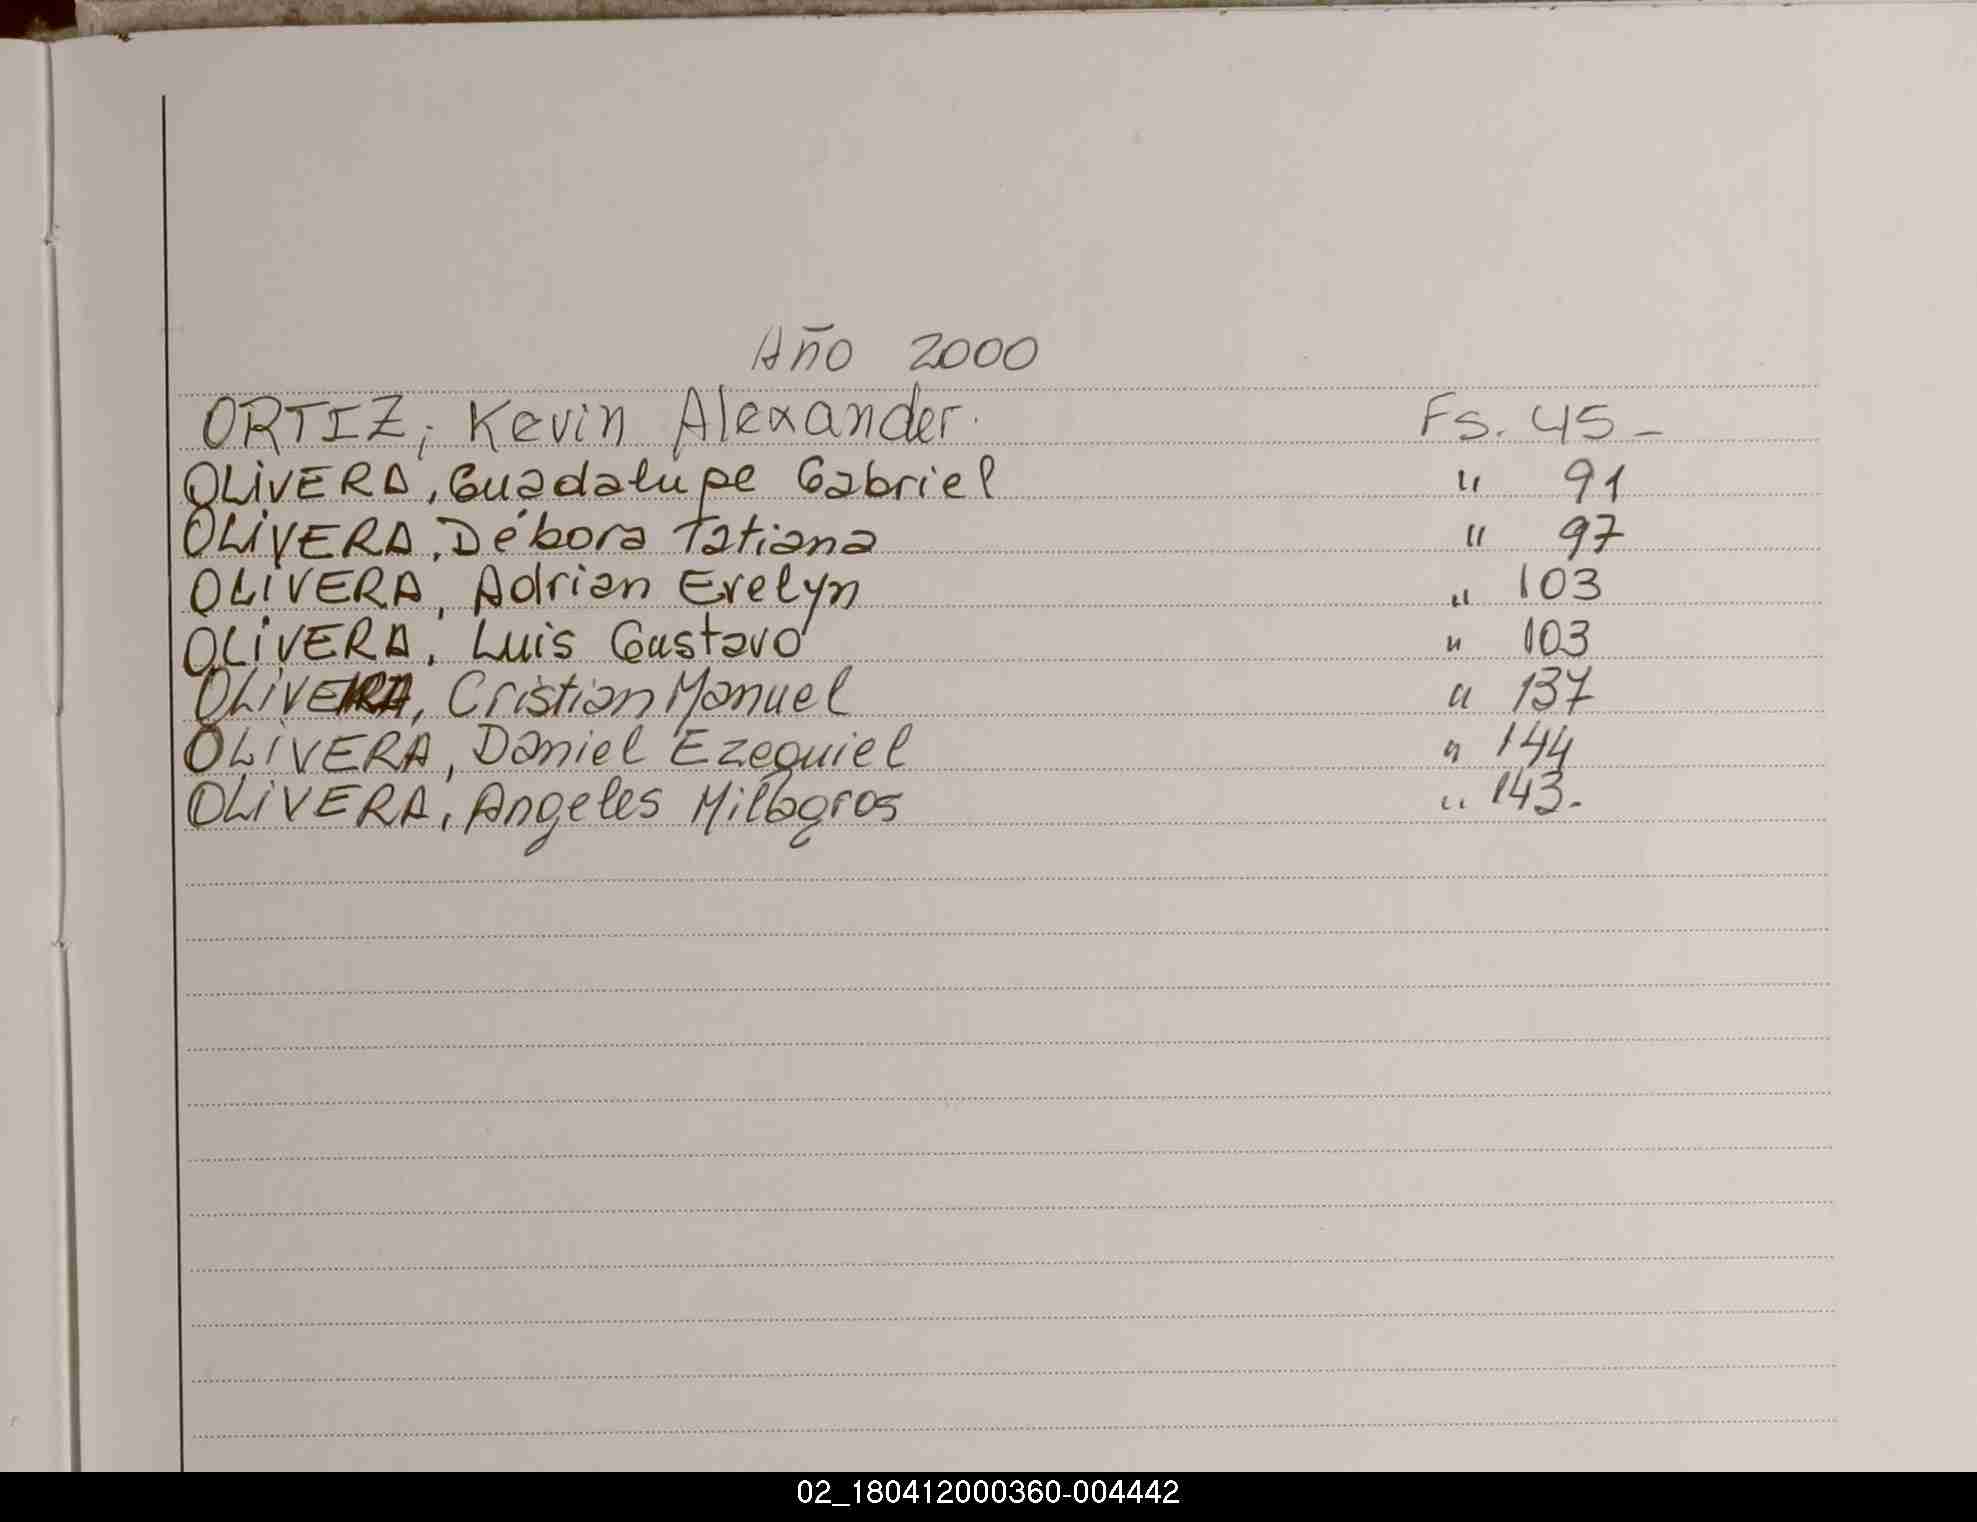 Año 2000
ORTIZ, Kevin Alexander. Fs. 45 -
OLIVERA, Guadalupe Gabriel " 91
OLIVERA, Débora Tatiana " 97
OLIVERA, Adrian Evelyn " 103
OLIVERA, Luis Gustavo " 103
OLIVERA, Cristian Manuel " 137
OLIVERA, Daniel Ezequiel " 144
OLIVERA, Angeles Milagros " 143.
02_180412000360-004442